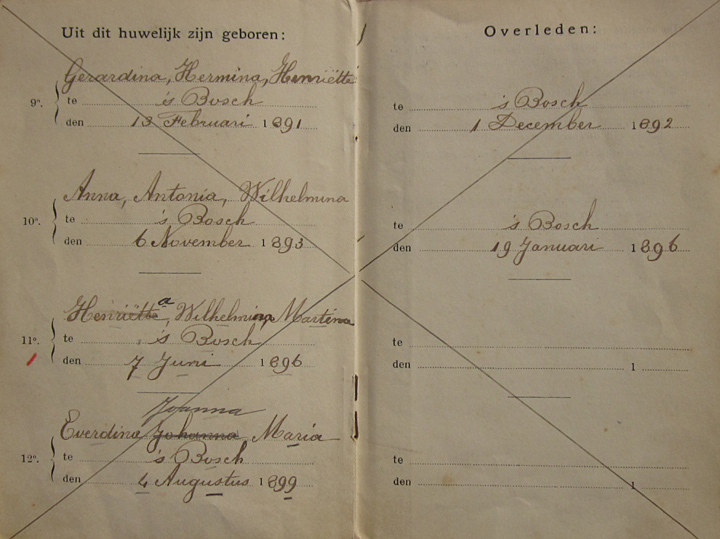 Uit dit huwelijk zijn geboren:
Gerardina, Hermina, Henriëtte
9º. te 's Bosch
den 13 Februari 1891
Anna, Antonia, Wilhelmina
10º. te 's Bosch
den 6 November 1893
a
Henriëtte, Wilhelmina, Martina
11º. te 's Bosch
den 7 Juni 1896
Joanna
Everdina Johanna Maria
12º. te 's Bosch
den 4 Augustus 1899
Overleden:
te 's Bosch
den 1 December 1892
te 's Bosch
den 19 Januari 1896
te
den 1
te
den 1